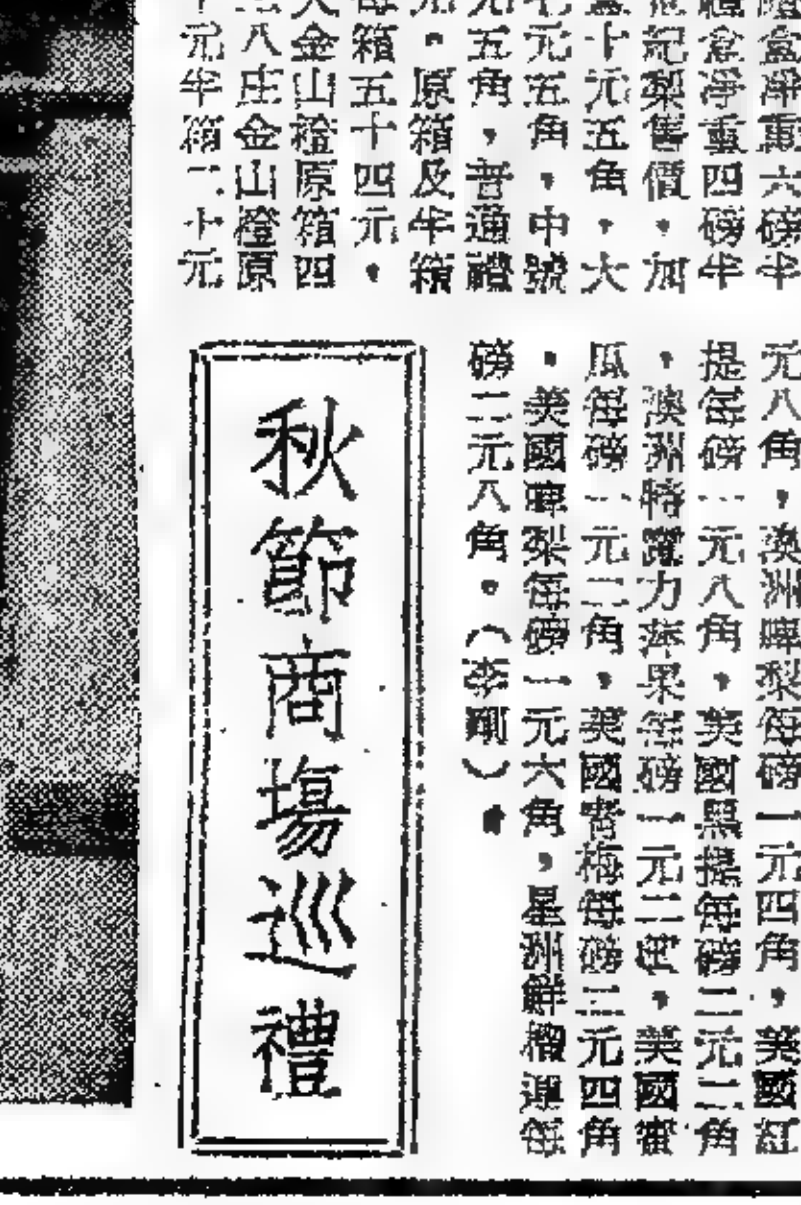 盒淨重六磅半
禮盒淨重四磅半
紀梨售價,加
十元五角,大
元五角,中號
元五角,普通禮
。原箱及半箱
每箱五十四元,
金山橙原箱四
八庄金山橙原
元半箱二十元
元八角,澳洲啤梨每磅一元四角,美國紅
提每磅一元八角,美國黑提每磅二元二角
,澳洲特躍力苹果每磅一元二,美國蜜
瓜每磅一元二角,美國青梅每磅三元四角
,美國啤梨每磅一元六角,星洲鮮榴連每
磅二元八角。(李剛)
秋節商場巡禮